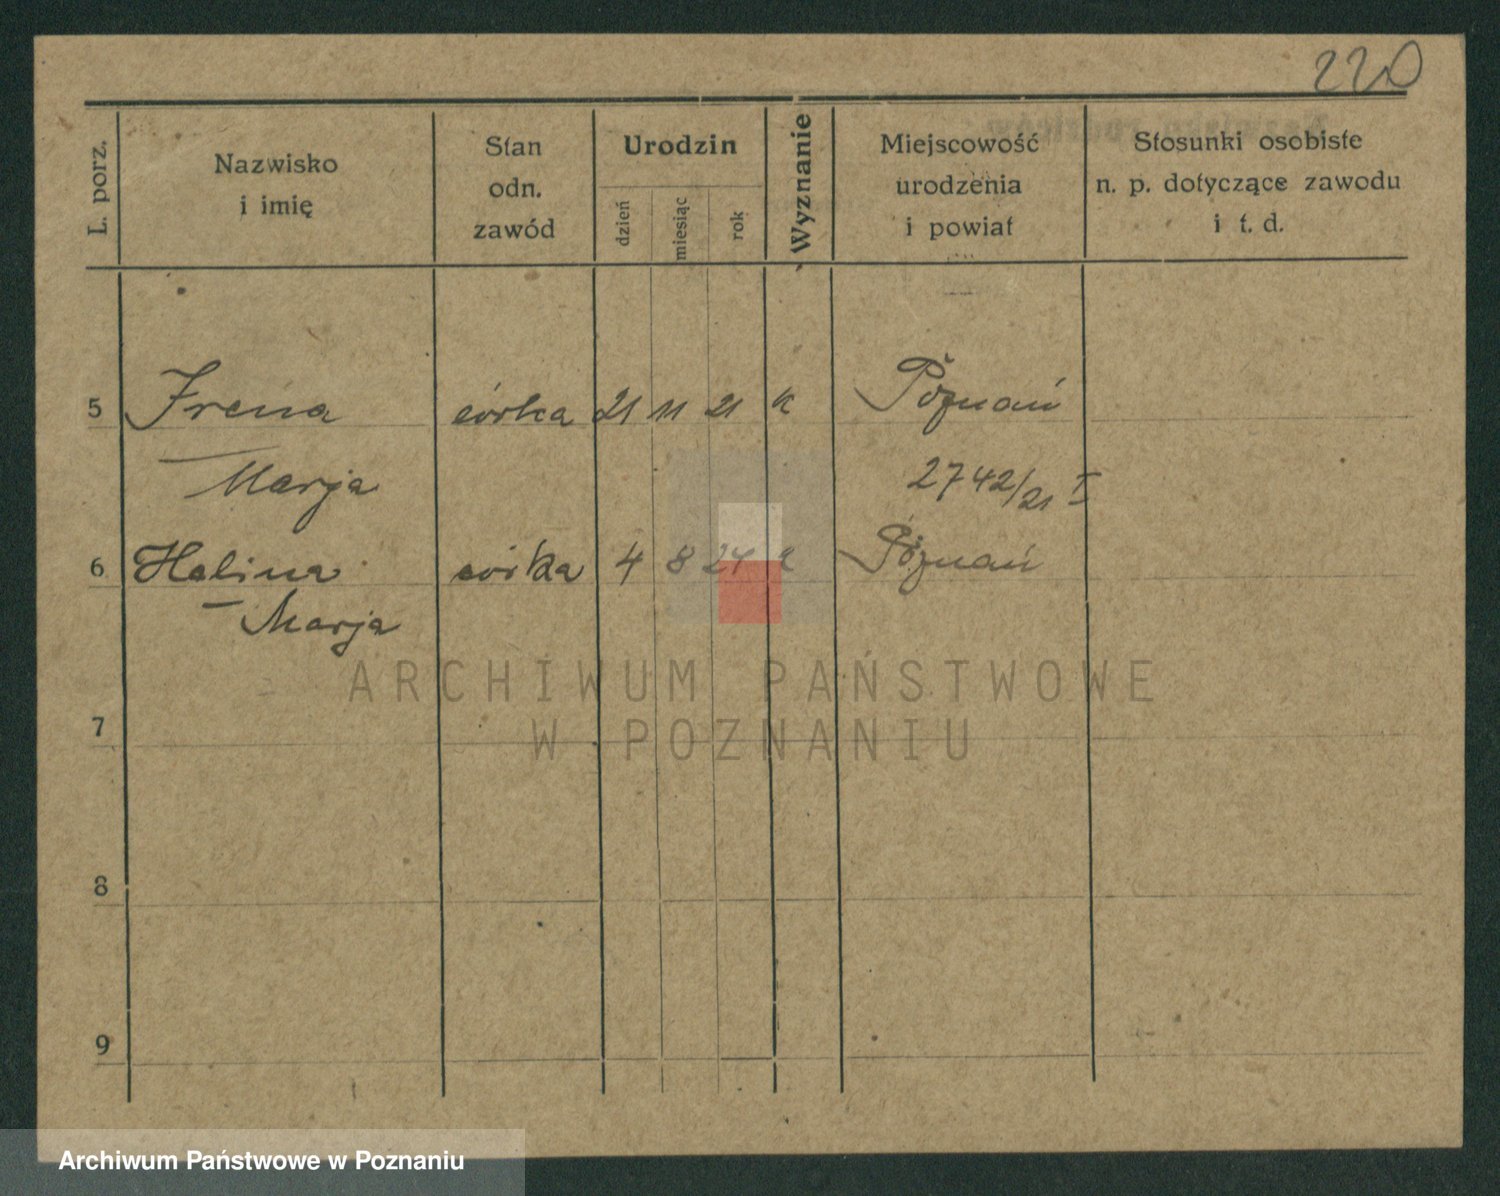 220
L. porz.
Nazwisko
i imię
Stan
odn.
zawód
Urodzin
dzień
miesiąc
rok
Wyznanie
Miejscowość
urodzenia
i powiat
Stosunki osobiste
n. p. dotyczące zawodu
i t. d.
5 Irena córka 21 11 21 k Poznań
Marja 2742/21 I
6 Halina córka 4 8 24 k Poznań
Marja
ARCHIWUM PAŃSTWOWE
W POZNANIU
7
8
9
Archiwum Państwowe w Poznaniu